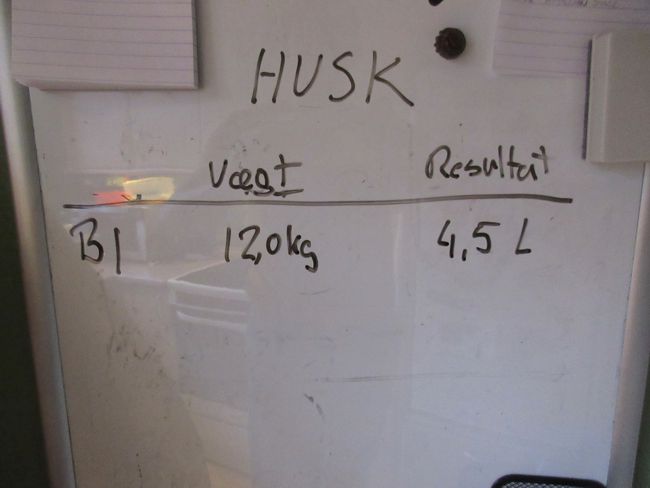 HUSK
Vægt Resultat
B1 12,0kg 4,5 L